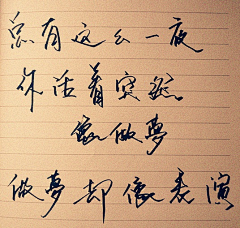 总有这么一夜
你活着突然
像做夢
做夢却像表演